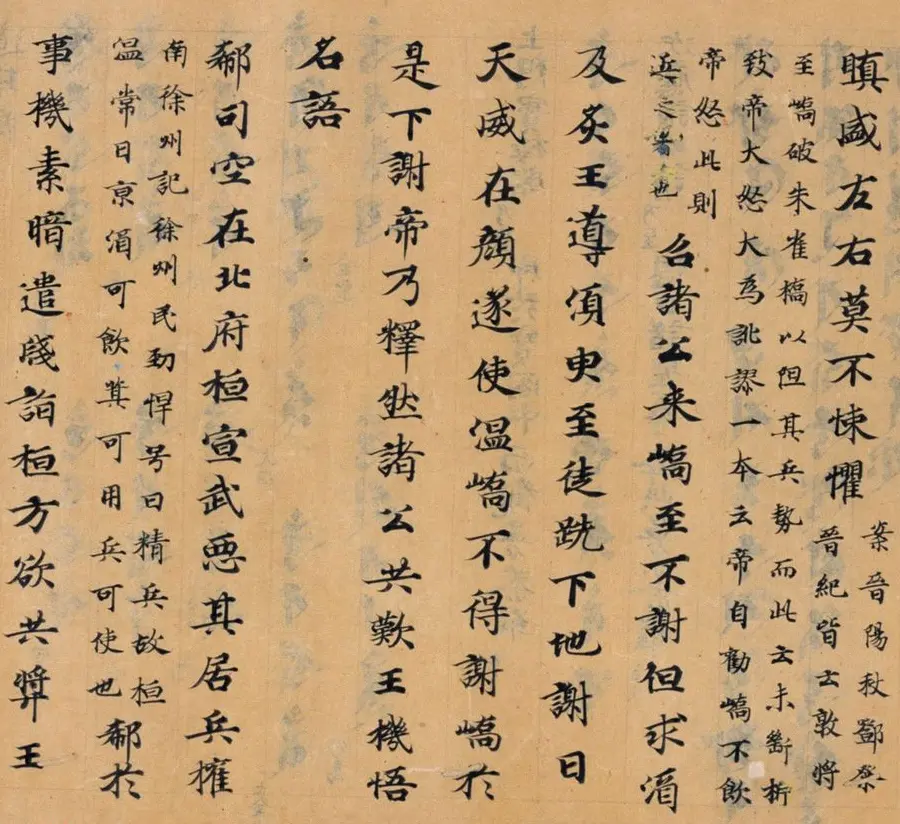 瞋盛左右莫不悚懼
案晉陽秋鄧粲
晉紀皆云敦將
至嶠破朱雀橋以阻其兵勢而此云未斷析
致帝大怒大為訛謬一本云帝自勸嶠不飲
帝怒此則
近之者也
召諸公来嶠至不謝但求酒
及炙王導須臾至徒跣下地謝曰
天威在顔遂使温嶠不得謝嶠於
是下謝帝乃釋然諸公共歎王機悟
名語
郗司空在北府桓宣武惡其居兵權
南徐州記徐州民勁悍号曰精兵故桓
温常曰京酒可飲箕可用兵可使也
郗於
事機素暗遣牋詣桓方欲共弉王